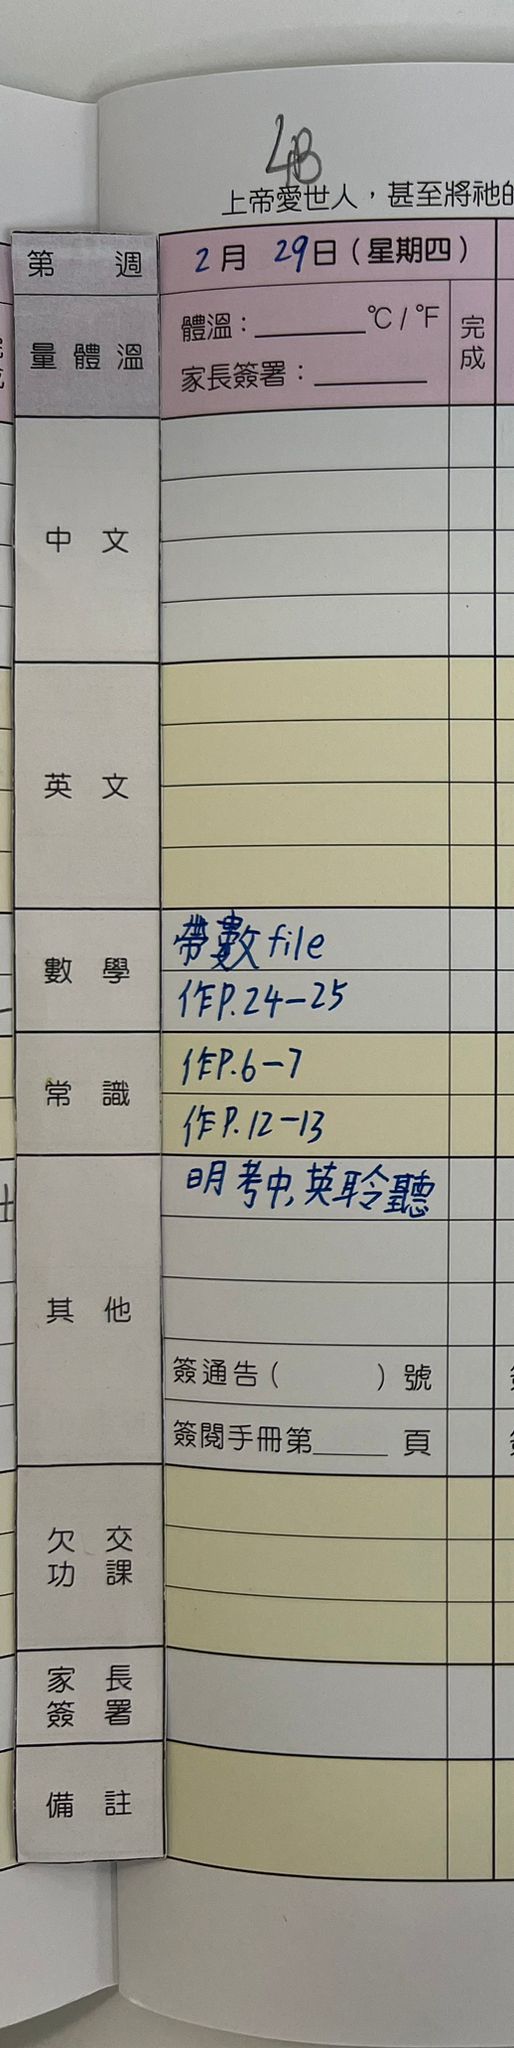 4B
上帝愛世人，甚至將祂的
第 週
2月 29日（星期四）
量體溫
體溫：______℃/℉
完成
家長簽署：______
中文
英文
數學
帶數file
作P.24-25
常識
作P.6-7
作P.12-13
其他
明考中,英聆聽
簽通告（ ）號
簽閱手冊第____頁
欠交功課
家長簽署
備註